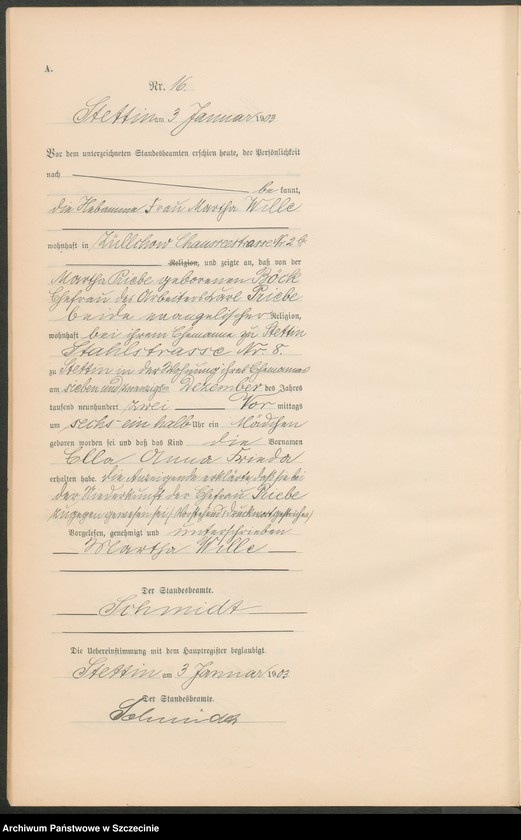 A.
Nr. 16.
Stettin am 3 Januar 1903
Vor dem unterzeichneten Standesbeamten erschien heute, der Persönlichkeit
nach
be kannt,
die Hebamme Frau Martha Wille
wohnhaft in Züllchow Chausseestrasse Nr. 2
Religion, und zeigte an, daß von der
Martha Priebe geborenen Böck
Ehefrau des Arbeiters Karl Priebe
beide evangelischer Religion,
wohnhaft bei ihrem Ehemanne zu Stettin
Stahlstrasse Nr. 8.
zu Stettin in der Wohnung ihres Ehemannes
am sieben und zwanzigsten Dezember des Jahres
tausend neunhundert zwei Vor mittags
um sechs ein halb Uhr ein Mädchen
geboren worden sei und daß das Kind die Vornamen
Ella Anna Frieda
erhalten habe. Die Anzeigende erklärte, daß sie bei
der Niederkunft der Ehefrau Priebe
zugegen gewesen sei. (Vorstehend Druckwort gestrichen)
Vorgelesen, genehmigt und unterschrieben
Martha Wille
Der Standesbeamte.
Schmidt
Die Uebereinstimmung mit dem Hauptregister beglaubigt.
Stettin am 3 Januar 1903
Der Standesbeamte.
Schmidt
Archiwum Państwowe w Szczecinie